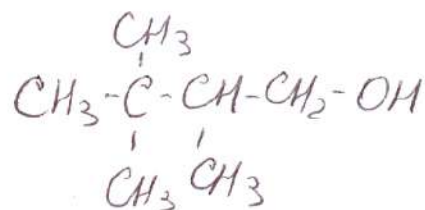 CH3
CH3-C-CH-CH2-OH
CH3 CH3